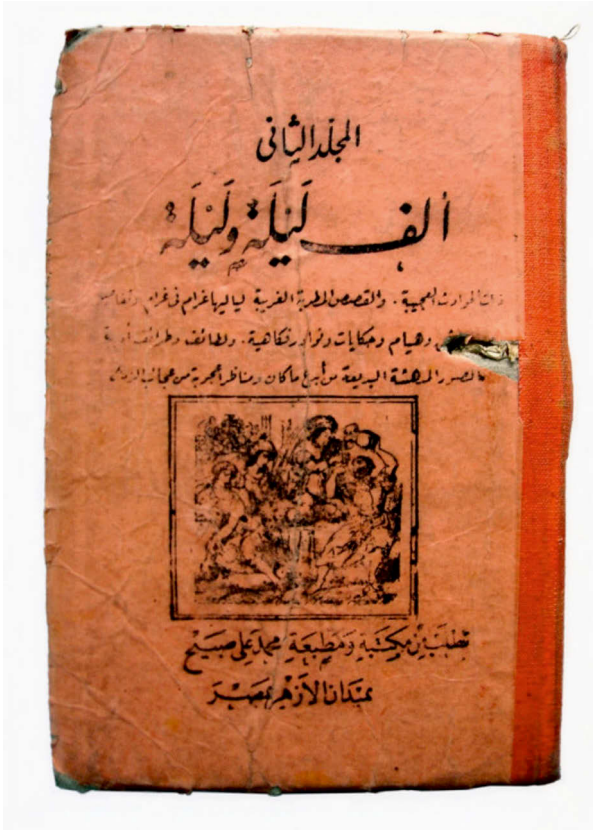 المجلد الثانى
ألف لَيْلَة وَلَيْلَة
ذات الحوادث العجيبة . والقصص المطربة الغريبة لياليها غرام فى غرام
وهيام وحكايات ونوادر فكاهية . ولطائف وطرائف أدبية
بالصور المدهشة البديعة من أبدع ماكان ومناظر أعجوبة من عجائب الزمان
تطلب من مكتبة ومطبعة محمد على صبيح
بميدان الأزهر بمصر